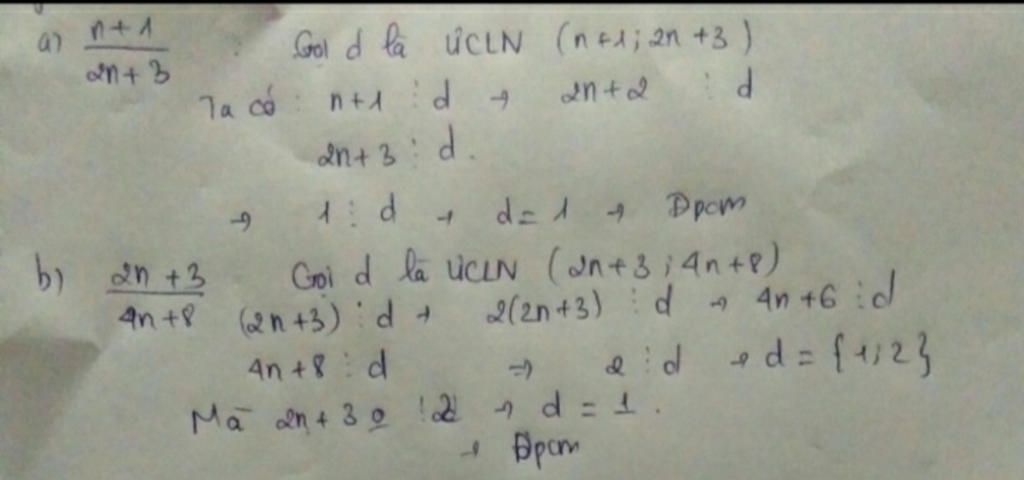 a) n+1 / 2n+3 . Gọi d là ƯCLN (n+1; 2n+3)
Ta có: n+1 ⋮ d → 2n+2 ⋮ d
2n+3 ⋮ d.
→ 1 ⋮ d → d = 1 → Đpcm
b) 2n+3 / 4n+8 Gọi d là ƯCLN (2n+3; 4n+8)
(2n+3) ⋮ d → 2(2n+3) ⋮ d → 4n+6 ⋮ d
4n+8 ⋮ d ⇒ 2 ⋮ d → d = {1;2}
Mà 2n+3 ⋮ 2 → d = 1.
→ Đpcm